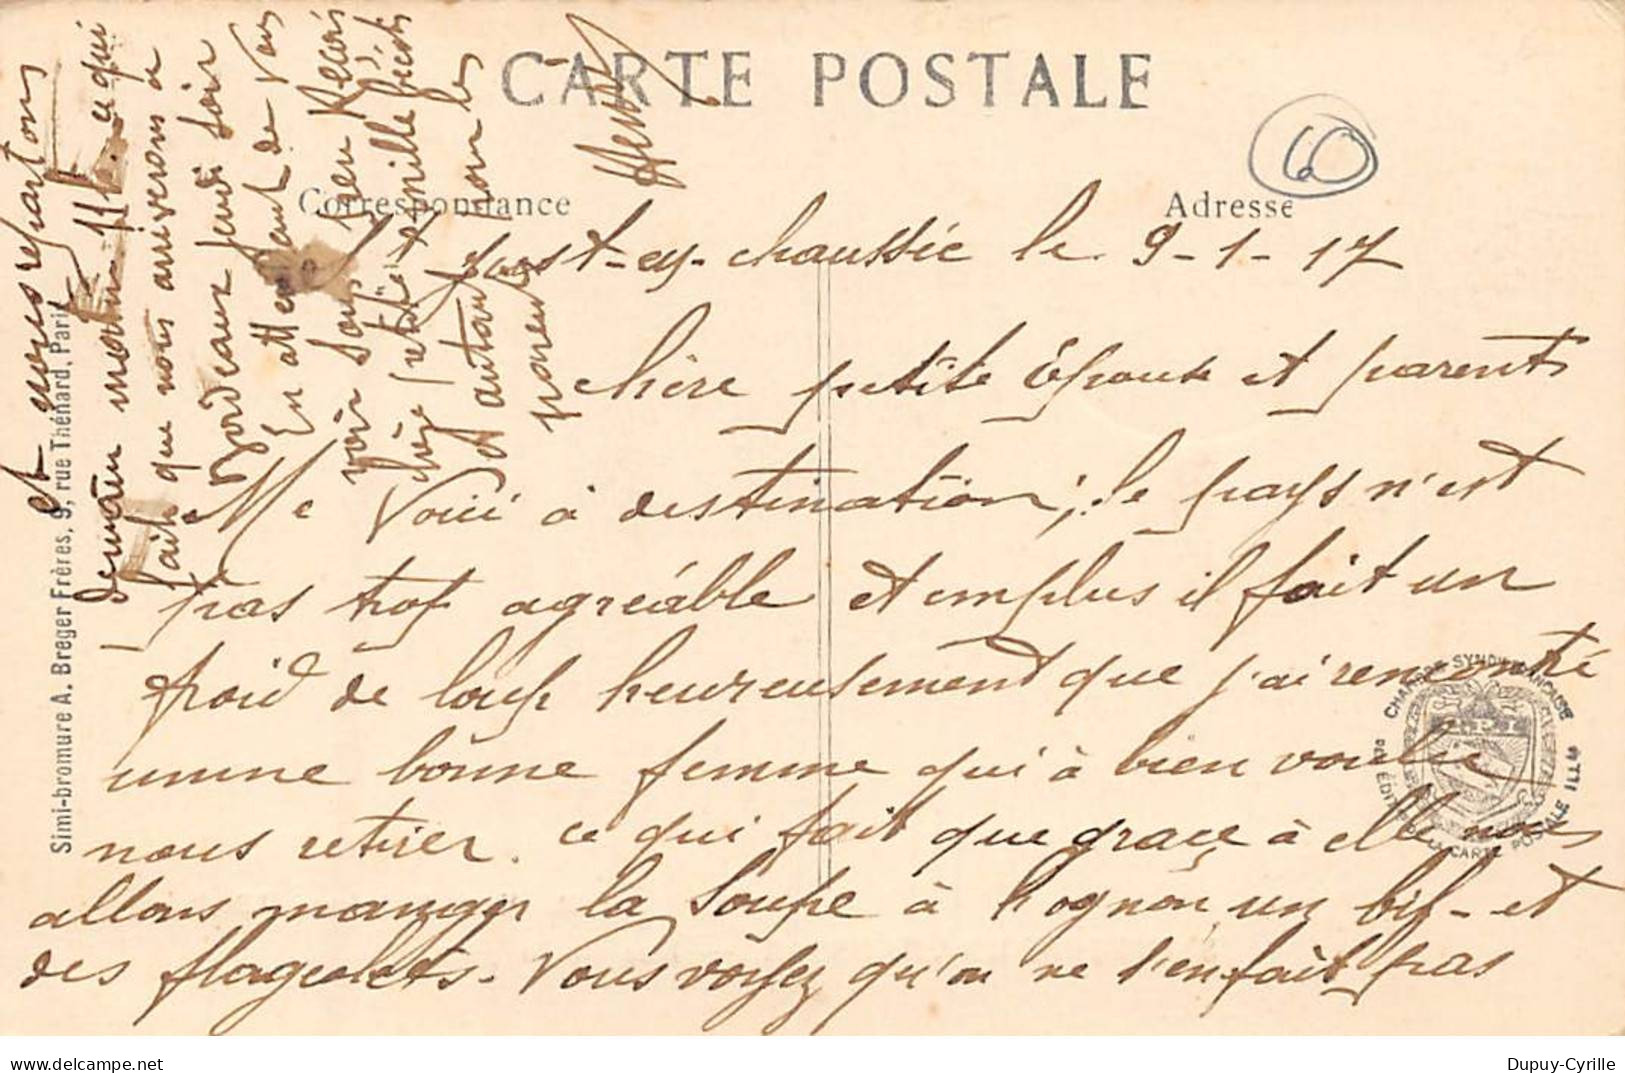 CARTE POSTALE
60
Correspondance
Adresse
St Just-en-chaussée le 9-1-17
Chère petite Épouse et parents
Me Voici à destination, le pays n'est
pas trop agréable et emplus il fait un
froid de loup heureusement que j'ai rencontré
unne bonne femme qui à bien voulu
nous retirer. ce qui fait que graçe à elle nous
allons manger la soupe à l'ognon, un bif- et
des flageolets. Vous voyez qu'on ne s'en fait pas
et nous repartons
demain matin 11h. ce qui
fait que nous arriverons a
Bordeaux jeudi soir
En attendant de Vous
voir tous bien Recois
chère petite famille
et autour
Henry
Simi-bromure A. Breger Frères, 9, rue Thénard, Paris
CHAMBRE SYNDICALE FRANÇAISE
DE LA CARTE POSTALE ILLée
www.delcampe.net
Dupuy-Cyrille